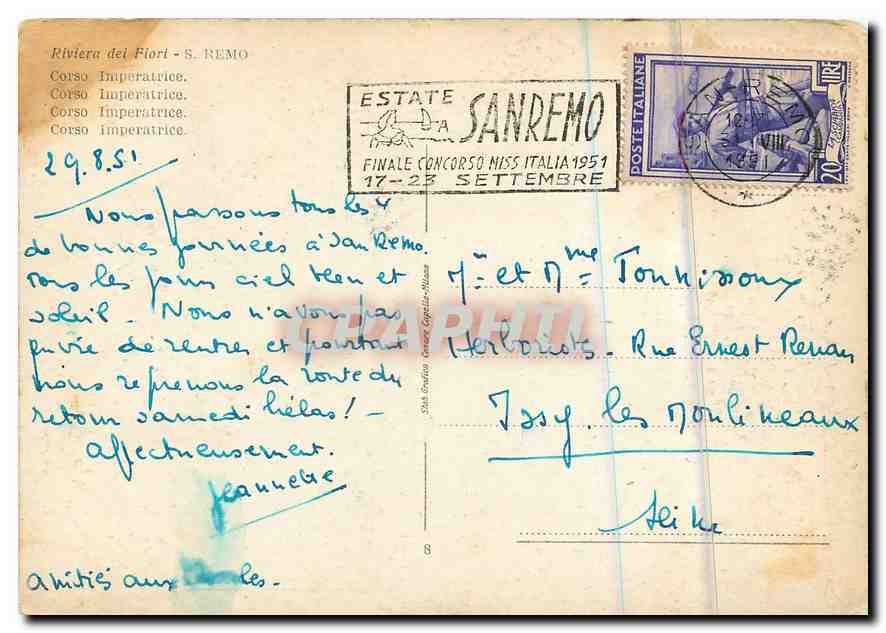 Riviera dei Fiori - S. REMO
Corso Imperatrice.
Corso Imperatrice.
Corso Imperatrice.
Corso Imperatrice.
29.8.51
Nous passons tous les 4
de bonnes journées à San Remo.
tous les jours ciel bleu et
soleil. Nous n'avons pas
envie de rentrer et pourtant
nous reprenons la route du
retour samedi hélas! -
Affectueusement.
Jeannette
Amitiés aux
ESTATE
A SANREMO
FINALE CONCORSO MISS ITALIA 1951
17-23 SETTEMBRE
POSTE ITALIANE
LIRE
20
VIII
1951
Mr et Mme
Herboristes. Rue Ernest Renan
Issy. les Moulineaux
Seine
Stab. Grafico Cesare Capello-Milano
8
CPAPHIL